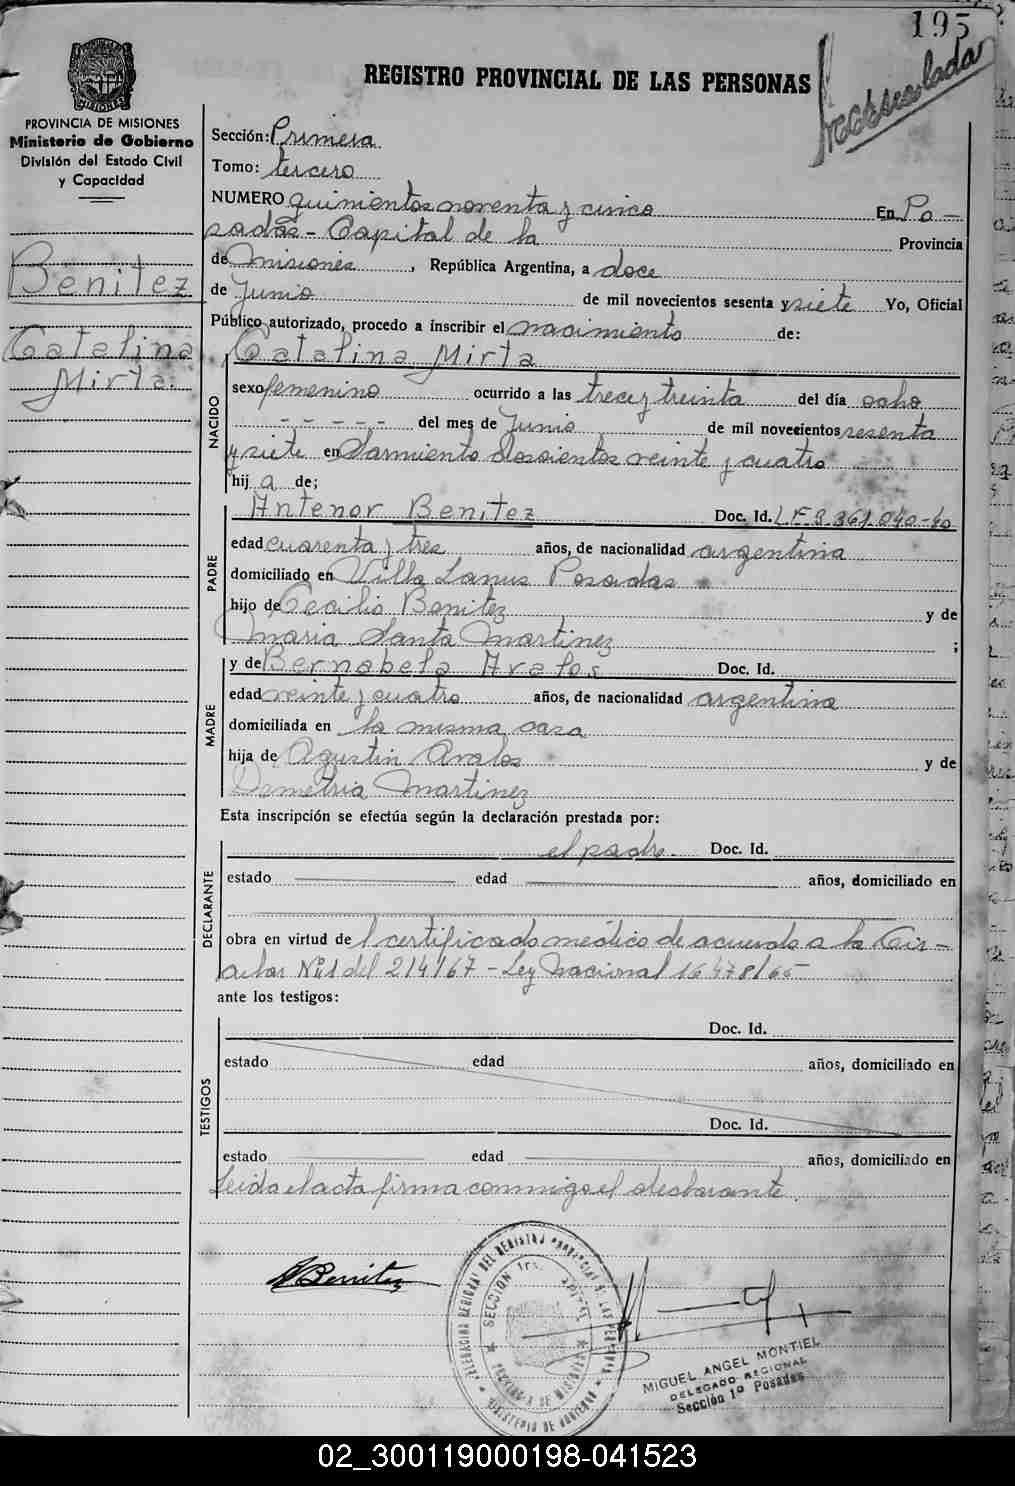 195
REGISTRO PROVINCIAL DE LAS PERSONAS
MISIONES
PROVINCIA DE MISIONES
Ministerio de Gobierno
División del Estado Civil
y Capacidad
Benitez
Catalina
Mirta.
Sección: Primera
Tomo: tercero
NUMERO quinientos noventa y cinco En Po-
sadas - Capital de la Provincia
de Misiones, República Argentina, a doce
de Junio de mil novecientos sesenta y siete Yo, Oficial
Público autorizado, procedo a inscribir el nacimiento de:
Catalina Mirta
NACIDO
sexo femenino ocurrido a las trece y treinta del día ocho
- - - - - del mes de Junio de mil novecientos sesenta
y siete en Sarmiento doscientos veinte y cuatro
hij a de;
PADRE
Antenor Benitez Doc. Id. L.E. 3.361.040-40
edad cuarenta y tres años, de nacionalidad argentina
domiciliado en Villa Lanus Posadas
hijo de Cecilio Benitez y de
Maria Santa Martinez ;
MADRE
y de Bernabela Avalos Doc. Id.
edad veinte y cuatro años, de nacionalidad argentina
domiciliada en la misma casa
hija de Agustin Avalos y de
Demetria Martinez
Esta inscripción se efectúa según la declaración prestada por:
DECLARANTE
el padre. Doc. Id.
estado edad años, domiciliado en
obra en virtud del certificado médico de acuerdo a la Cir-
cular Nº 1 del 2/4/67 - Ley Nacional 16478/65
ante los testigos:
TESTIGOS
Doc. Id.
estado edad años, domiciliado en
Doc. Id.
estado edad años, domiciliado en
Leida el acta firma conmigo el declarante.
Benitez
MIGUEL ANGEL MONTIEL
DELEGADO REGIONAL
Sección 1º Posadas
02_300119000198-041523